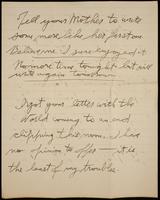 Tell your Mother to write
some more like her first one
Believe me I sure enjoyed it
No more time tonight but will
write again tomorrow

I got your letter with the
World coming to an end
clipping this noon. I has
no opinion to offer — it is
the least of my troubles.